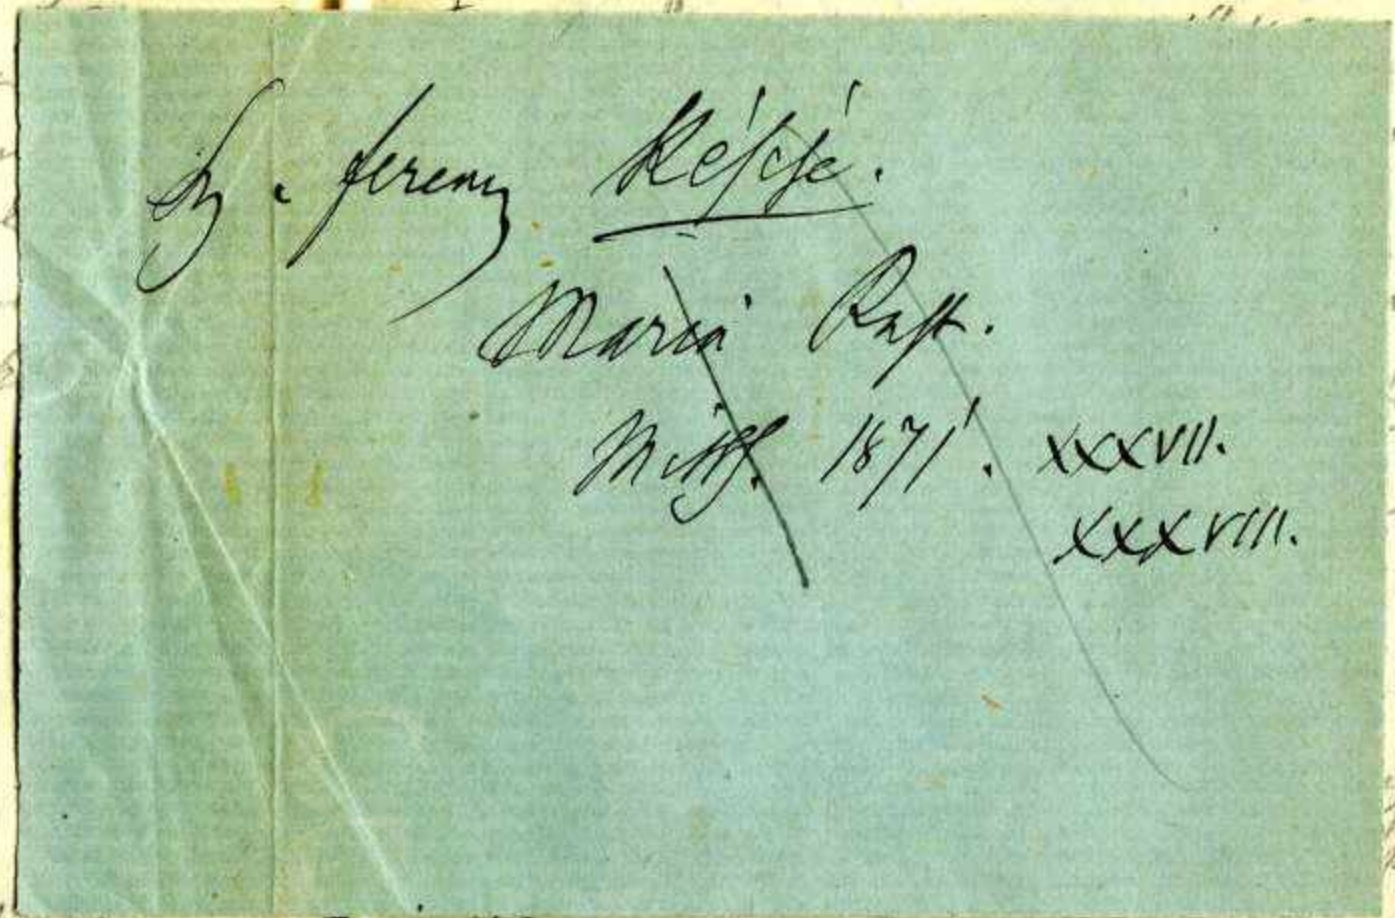 Sz. ferencz
Maria Rast.
Mitth. 1871. XXXVII.
XXXVIII.